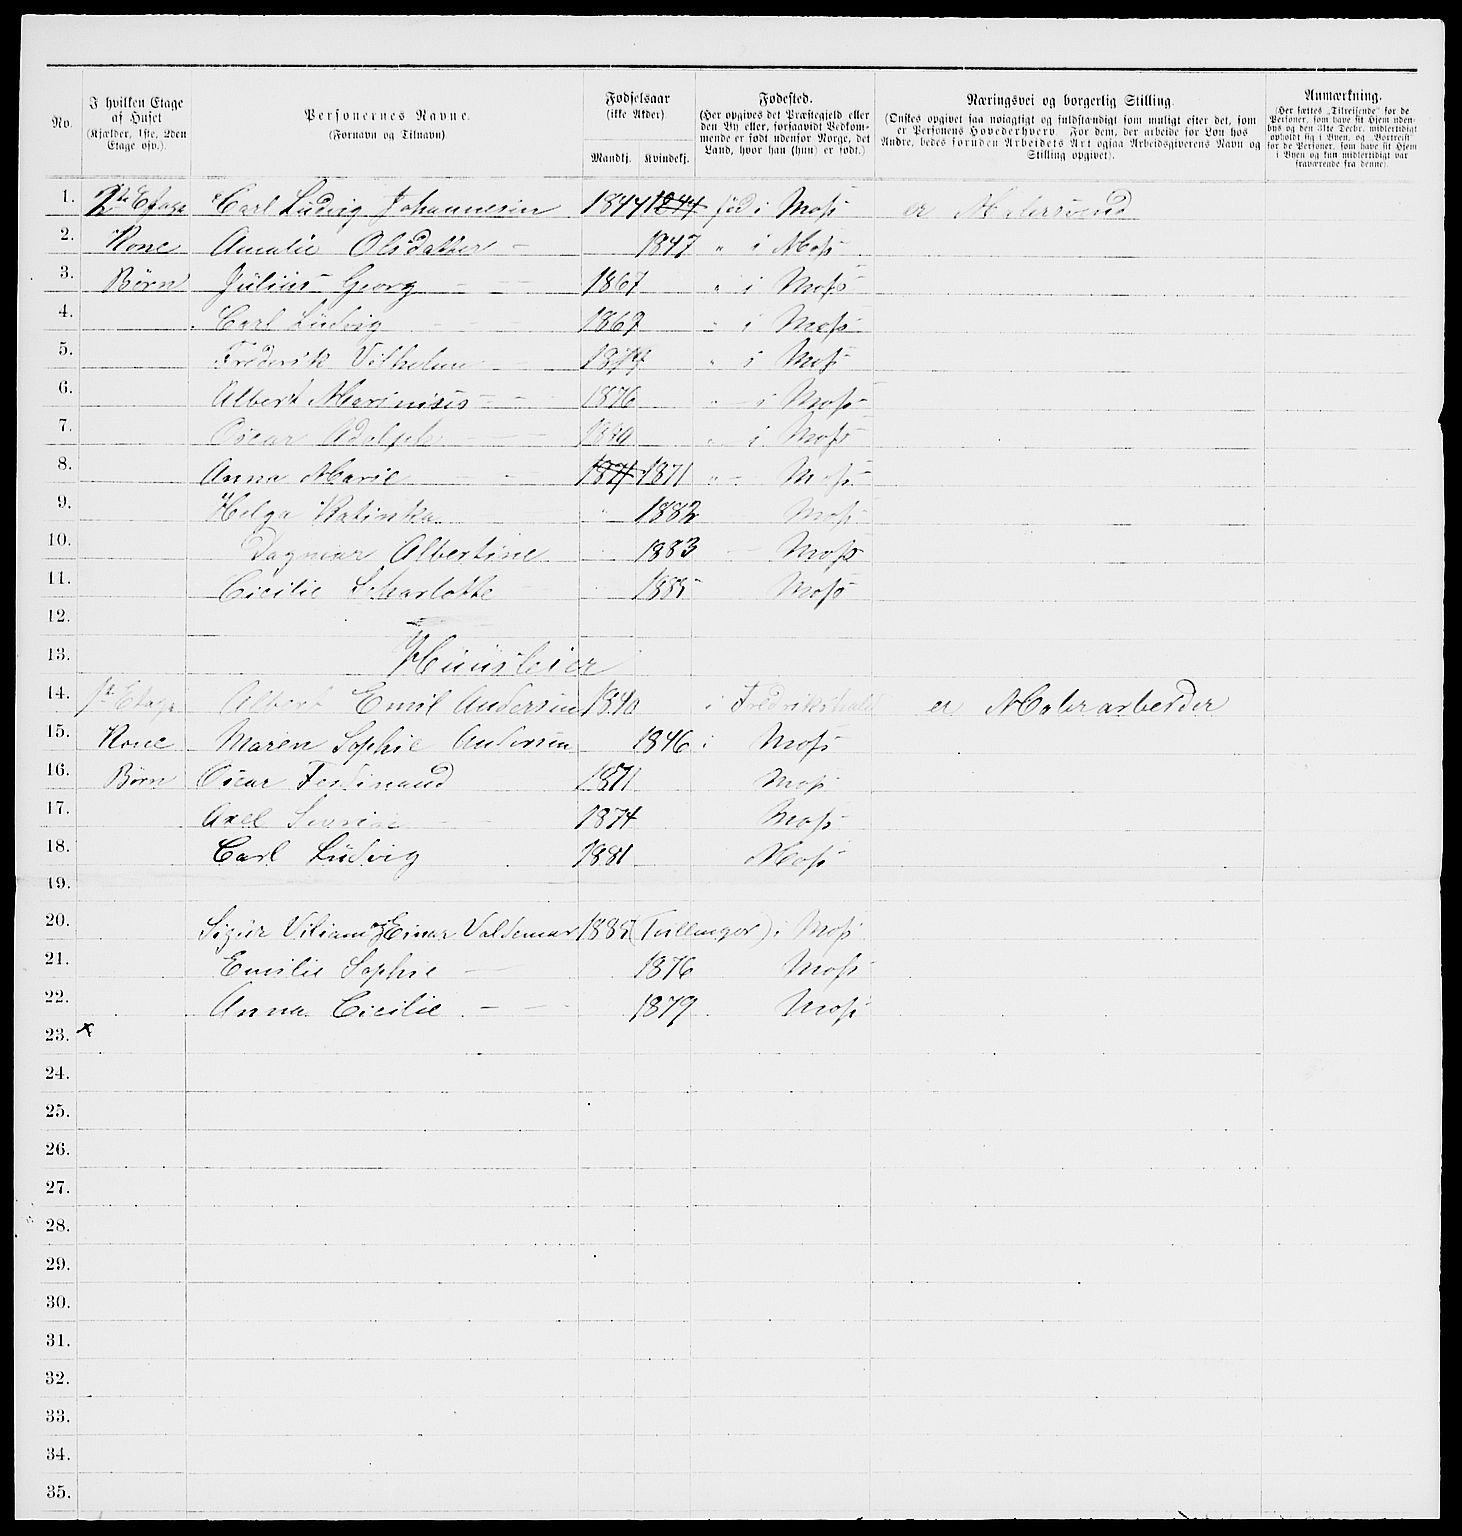 No.
I hvilken Etage af Huset (Kjælder, 1ste, 2den Etage osv.).
Personernes Navne. (Fornavn og Tilnavn).
Fødselsaar (ikke Alder) Mandkj. Kvindekj.
Fødested. (Her opgives det Præstegjeld eller den By eller, forsaavidt Vedkommende er født udenfor Norge, det Land, hvor han (hun) er født.)
Næringsvei og borgerlig Stilling. (Ønskes opgivet saa nøiagtigt og fuldstændigt som muligt efter det, som er Personens Hovederhverv. For dem, der arbeide for Løn hos Andre, bedes foruden Arbeidets Art ogsaa Arbeidsgiverens Navn og Stilling opgivet).
Anmærkning. (Her sættes „Tilreisende“ for de Personer, som have sit Hjem udenbys og den 31te Decbr. midlertidigt opholdt sig i Byen, og „Bortreist“ for de Personer, som have sit Hjem i Byen og kun midlertidigt var fraværende fra denne).
1. 2de Etage Carl Ludvig Johannesen 1844 1844 fød i Moss er Malersvend
2. Kone Amalie Olsdatter – 1847 „ i Moss
3. Børn Julius Georg – – 1867 „ i Moss
4. Carl Ludvig – – – 1869 „ i Moss
5. Frederik Vilhelm – 1874 „ i Moss
6. Albert Marinius – – 1876 „ – i Moss
7. Oscar Adolph – – – 1880 „ i Moss
8. Anna Marie – – 1871 1871 „ – Moss
9. Helga Katinka 1882 Moss
10. Dagmar Albertine 1883 – Moss
11. Cicilie Scharlotte 1885 Moss
12.
13. Huusleier
14. 1st Etage Albert Emil Andersen 1840 i Fredrikshald er Malerarbeider
15. Kone Maren Sophie Andersen 1846 i Moss
16. Børn Oscar Ferdinand 1871 Moss
17. Axel – – 1874 Moss
18. Carl Ludvig 1881 Moss
19.
20. Sigur Viliam og Einar Valdemar 1885 (Tvillinger) i Moss
21. Emilie Sophie – 1876 Moss
22. Anna Cicilie – – 1879 Moss
23. x
24.
25.
26.
27.
28.
29.
30.
31.
32.
33.
34.
35.